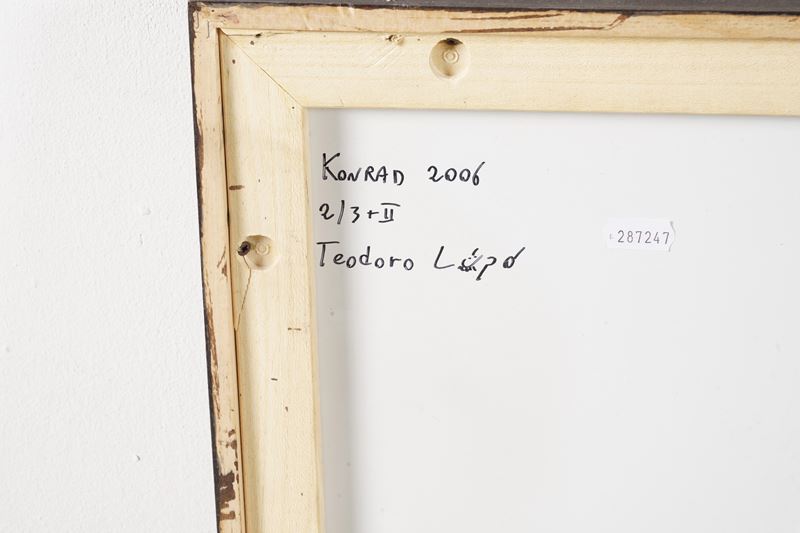 KONRAD 2006
2/3+II
Teodoro
287247